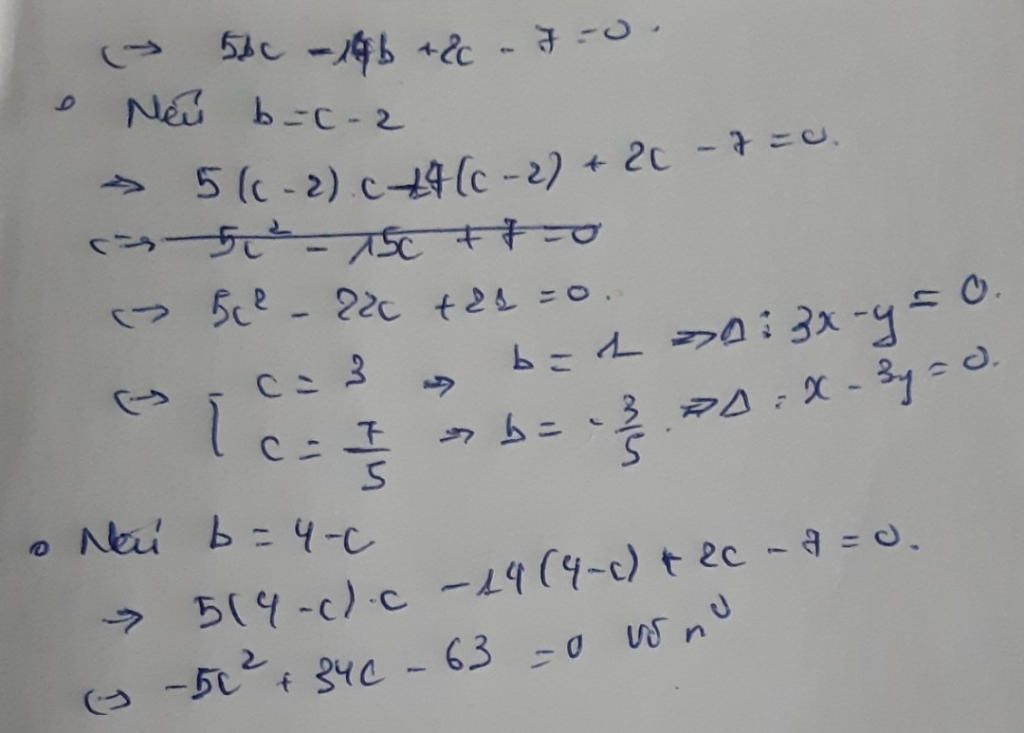 <-> 5bc - 14b + 2c - 7 = 0.
• Nếu b = c - 2
=> 5(c - 2).c - 14(c - 2) + 2c - 7 = 0.
<=> 5c² - 15c + 7 = 0
<-> 5c² - 22c + 21 = 0.
<-> [ c = 3 => b = 1 => Δ: 3x - y = 0.
c = 7/5 => b = -3/5. => Δ: x - 3y = 0.
• Nếu b = 4 - c
=> 5(4 - c).c - 14(4 - c) + 2c - 7 = 0.
<=> -5c² + 34c - 63 = 0 vô n⁰